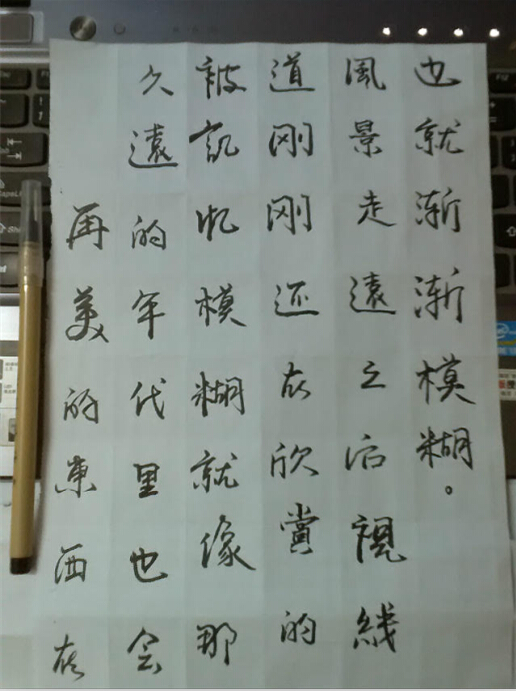 再美的東西在
久遠的年代里也会
被記忆模糊就像那
道刚刚还在欣賞的
風景走遠之后視綫
也就渐渐模糊。